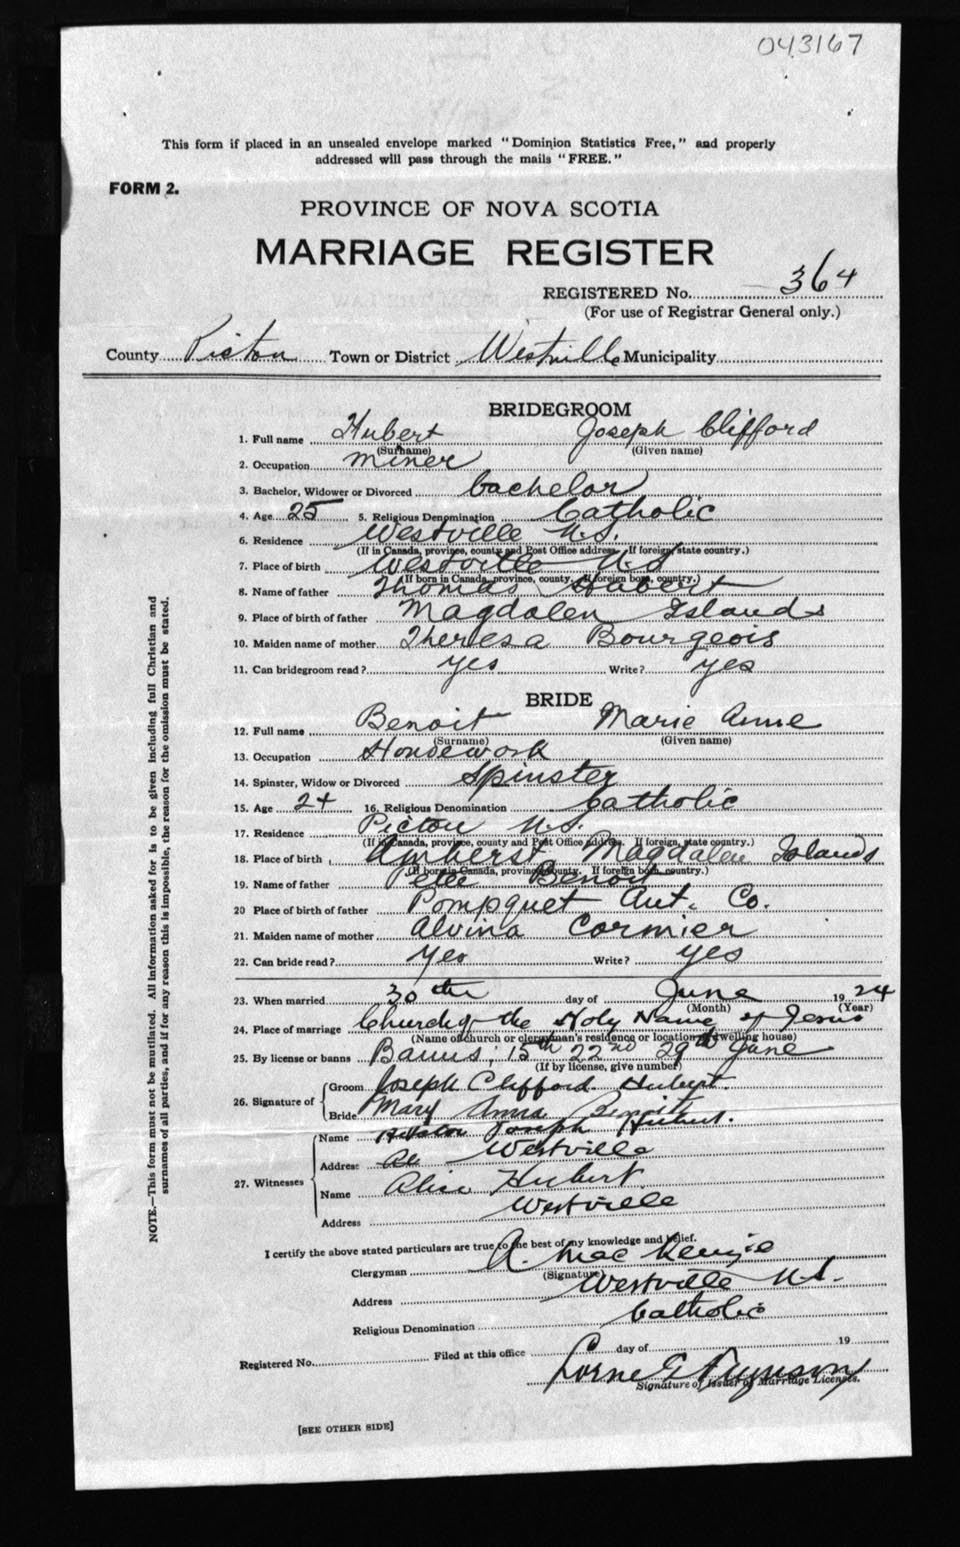 043167
This form if placed in an unsealed envelope marked "Dominion Statistics Free," and properly
addressed will pass through the mails "FREE."
FORM 2.
PROVINCE OF NOVA SCOTIA
MARRIAGE REGISTER
REGISTERED No. 364
(For use of Registrar General only.)
County Pictou Town or District Westville Municipality
BRIDEGROOM
1. Full name Hubert Joseph Clifford
(Surname) (Given name)
2. Occupation miner
3. Bachelor, Widower or Divorced bachelor
4. Age 25 5. Religious Denomination Catholic
6. Residence Westville N.S.
(If in Canada, province, county and Post Office address. If foreign, state country.)
7. Place of birth Westville N.S
(If born in Canada, province, county. If foreign born, country.)
8. Name of father Thomas Hubert
9. Place of birth of father Magdalen Islands
10. Maiden name of mother Theresa Bourgeois
11. Can bridegroom read? yes Write? yes
BRIDE
12. Full name Benoit Marie Anne
(Surname) (Given name)
13. Occupation Housework
14. Spinster, Widow or Divorced Spinster
15. Age 24 16. Religious Denomination Catholic
17. Residence Pictou N.S.
(If in Canada, province, county and Post Office address. If foreign, state country.)
18. Place of birth Amherst Magdalen Islands
(If born in Canada, province, county. If foreign born, country.)
19. Name of father Peter Benoit
20 Place of birth of father Pompquet Ant. Co.
21. Maiden name of mother Alvina Cormier
22. Can bride read? Yes Write? yes
23. When married 30th day of June 1924
(Month) (Year)
24. Place of marriage Church of the Holy Name of Jesus
(Name of church or clergyman's residence or location of dwelling house)
25. By license or banns Banns; 15th 22nd 29th June
(If by license, give number)
26. Signature of
Groom Joseph Clifford Hubert.
Bride Mary Anna Benoit
27. Witnesses
Name Joseph Hubert.
Address Westville
Name Alice Hubert
Address Westville
I certify the above stated particulars are true to the best of my knowledge and belief.
Clergyman A. MacKenzie
(Signature)
Address Westville N.S.
Religious Denomination Catholic
Registered No. Filed at this office day of 19
Lorne E
Signature of Issuer of Marriage Licenses.
[SEE OTHER SIDE]
NOTE.—This form must not be mutilated. All information asked for is to be given including full Christian and
surnames of all parties, and if for any reason this is impossible, the reason for the omission must be stated.